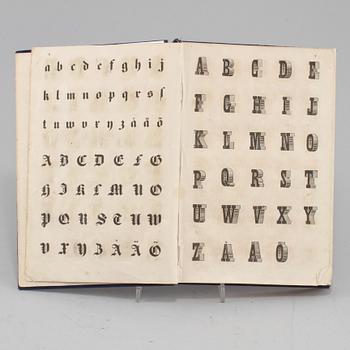 a b c d e f g h i j
k l m n o p q r s ſ
t u w v x y z å ä ö
A B C D E F G
H I K L M N O
P Q R S T U W
V X Y Z Å Ä Ö
A B C D E
F G H I J
K L M N O
P Q R S T
U W V X Y
Z Å Ä Ö